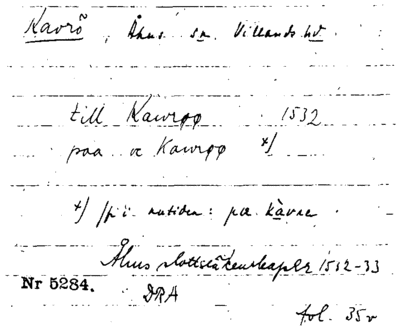 Kavrö, Åhus sn Villands hd.
till Kawrøø 1532
paa vc Kawrøø x)
x) /þ i nutiden: pa kàvne.
Åhus slottsräkenskaper 1532-33
Nr 5284.
DRA
fol. 35v